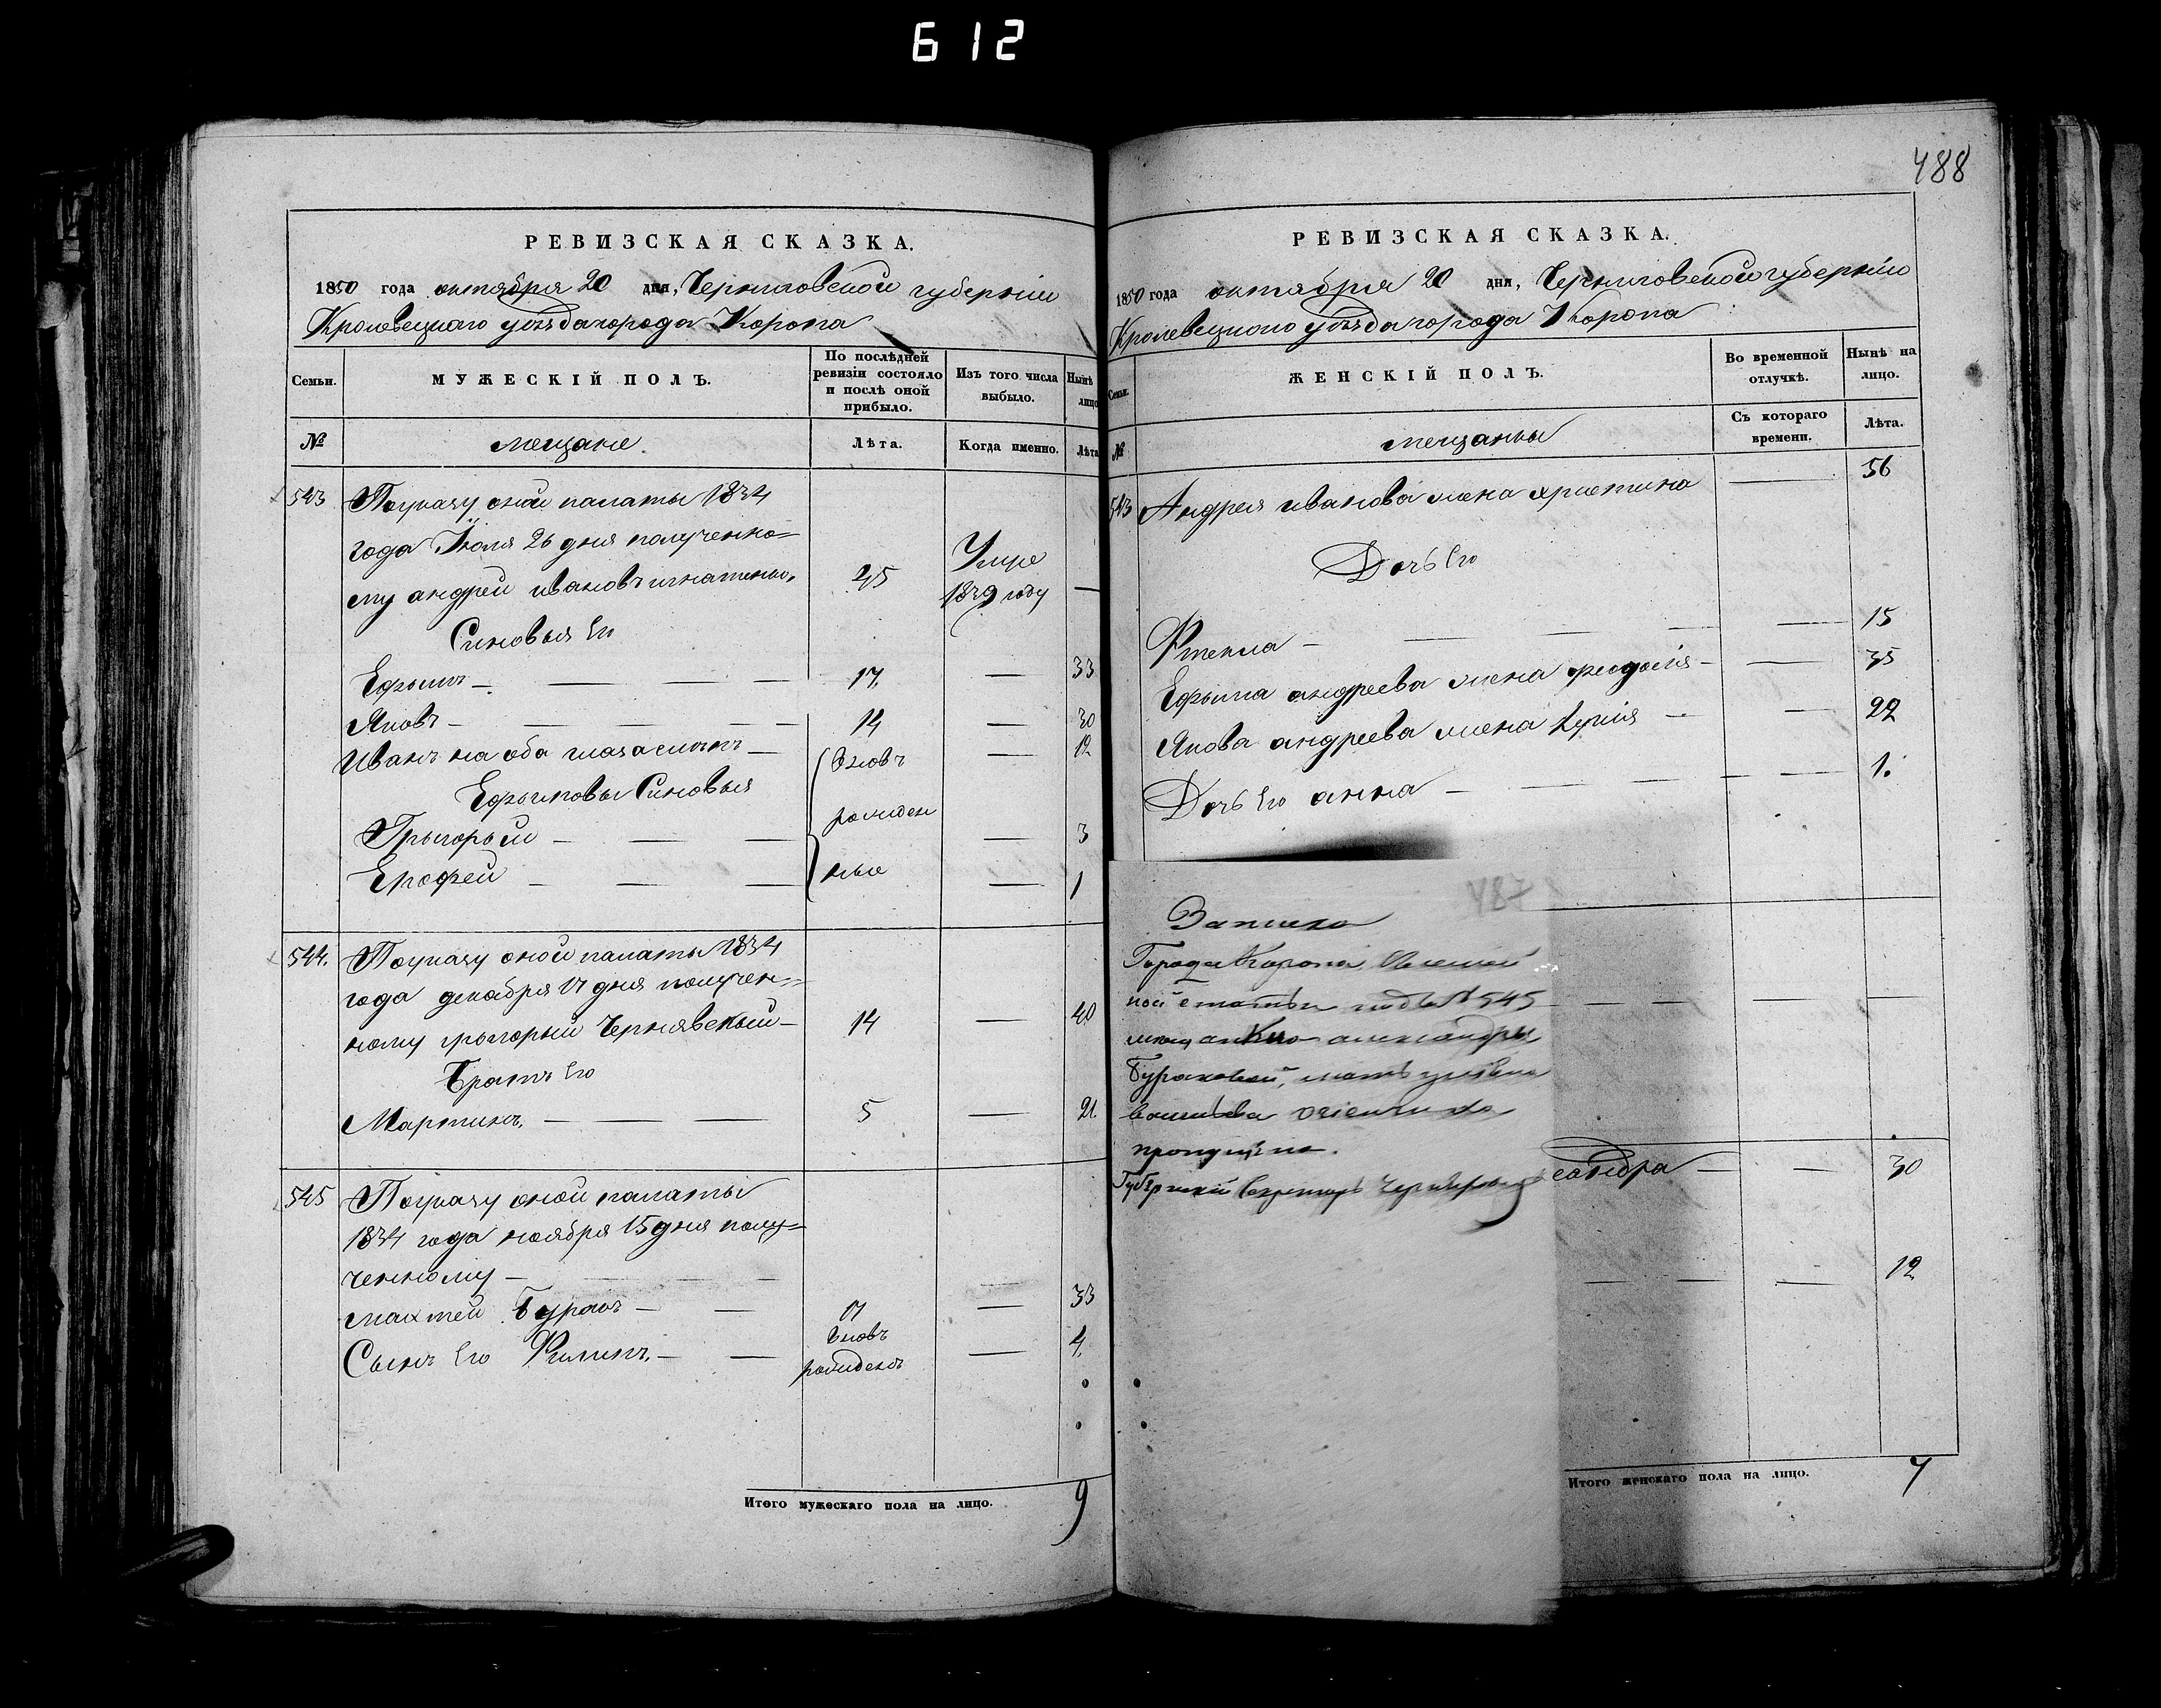 612
488
РЕВИЗСКАЯ СКАЗКА.
1850 года октября 20 дня, Черниговской губерніи
Кролевецкаго уѣзда города Коропа
Семьи.
МУЖЕСКІЙ ПОЛЪ.
По послѣдней ревизіи состояло и послѣ оной прибыло.
Изъ того числа выбыло.
Нынѣ лицо
№
мещане
Лѣта.
Когда именно.
Лѣта
543 По указу оной палаты 1834
года Июля 26 дня полученно=
му андрей ивановъ игнатенко 45 Умре 1839 году —
Синовья Его
Ефымъ — 17 — 33
Яковъ — 14 — 30
Иванъ на оба глаза слѣпъ — вновь — 12
Ефымовы Синовья
рожден
Грыгорый — — 3
Ерофей — ные — 1
544. По указу оной палаты 1834
года декабря 17 дня получен=
ному грыгорый Чернявскый — 14 — 40
Братъ Его
Мартинъ — 5 — 21
545 По указу оной палаты
1834 года ноября 15 дня полу=
ченному —
махтей Буракъ — 17 — 33
Сынъ Его Филипъ — вновь рожденъ — 4
Итого мужескаго пола на лицо. 9
РЕВИЗСКАЯ СКАЗКА.
1850 года октября 20 дня, Черниговской губерніи
Кролевецкаго уѣзда города Коропа
Семьи.
ЖЕНСКІЙ ПОЛЪ.
Во временной отлучкѣ.
Нынѣ на лицо.
№
мещанкы
Съ котораго времени.
Лѣта.
543 Андрея иванова жена христина — 56
Дочь Его
Фтекла — — 15
Ефыма андреева жена феодосія — — 35
Якова андреева жена — — 22
Дочь Его анна — — 1.
487
Записка
Города Коропа
ной статьи подъ № 545
мещанкы александры
Бураковой,
пропущена.
Губернскій Секретарь
сандра — — 30
— — 12
Итого женскаго пола на лицо. 7